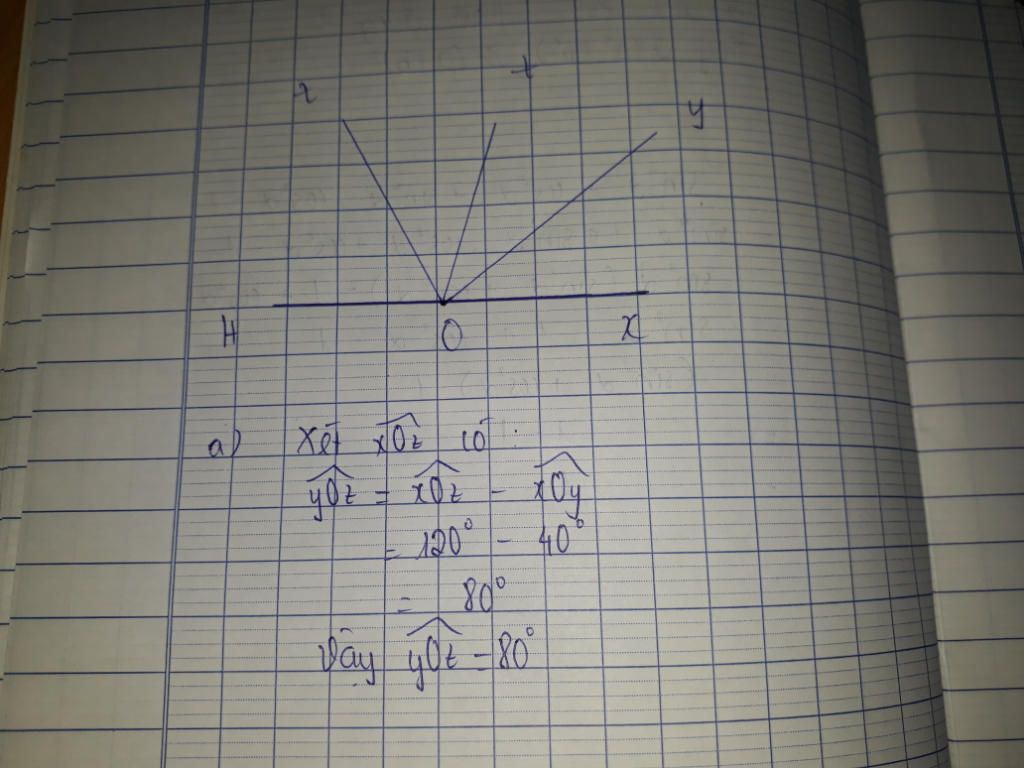 z t y
H O x
a) Xét xOz có :
yOz = xOz - xOy
= 120° - 40°
= 80°
Vậy yOz = 80°